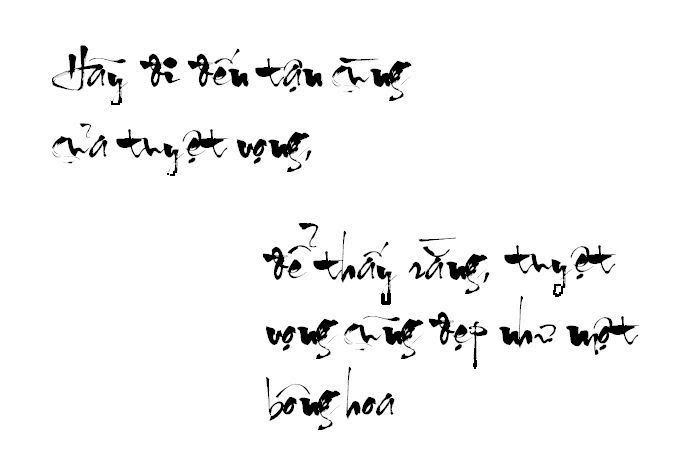 Hãy đi đến tận cùng
của tuyệt vọng,
để thấy rằng, tuyệt
vọng cũng đẹp như một
bông hoa